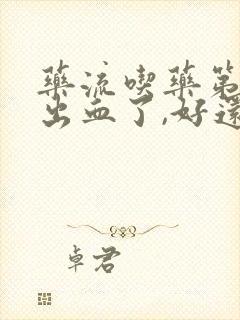 藥流喫藥第
出血了,好還
卓君